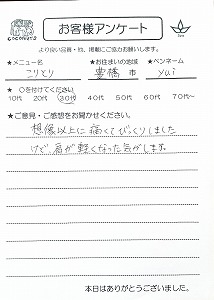 お客様アンケート
より良い店舗・他、掲載にご協力お願いします。
★メニュー名 ★お住まいの地域 ★ペンネーム
こりとり 豊橋 市 yui
★ ○を付けてください
10代 20代 30代 40代 50代 60代 70代~
★ご意見・ご感想をお聞かせください。
想像以上に痛くてびっくりしました
けど、肩が軽くなった気がします。
本日はありがとうございました。